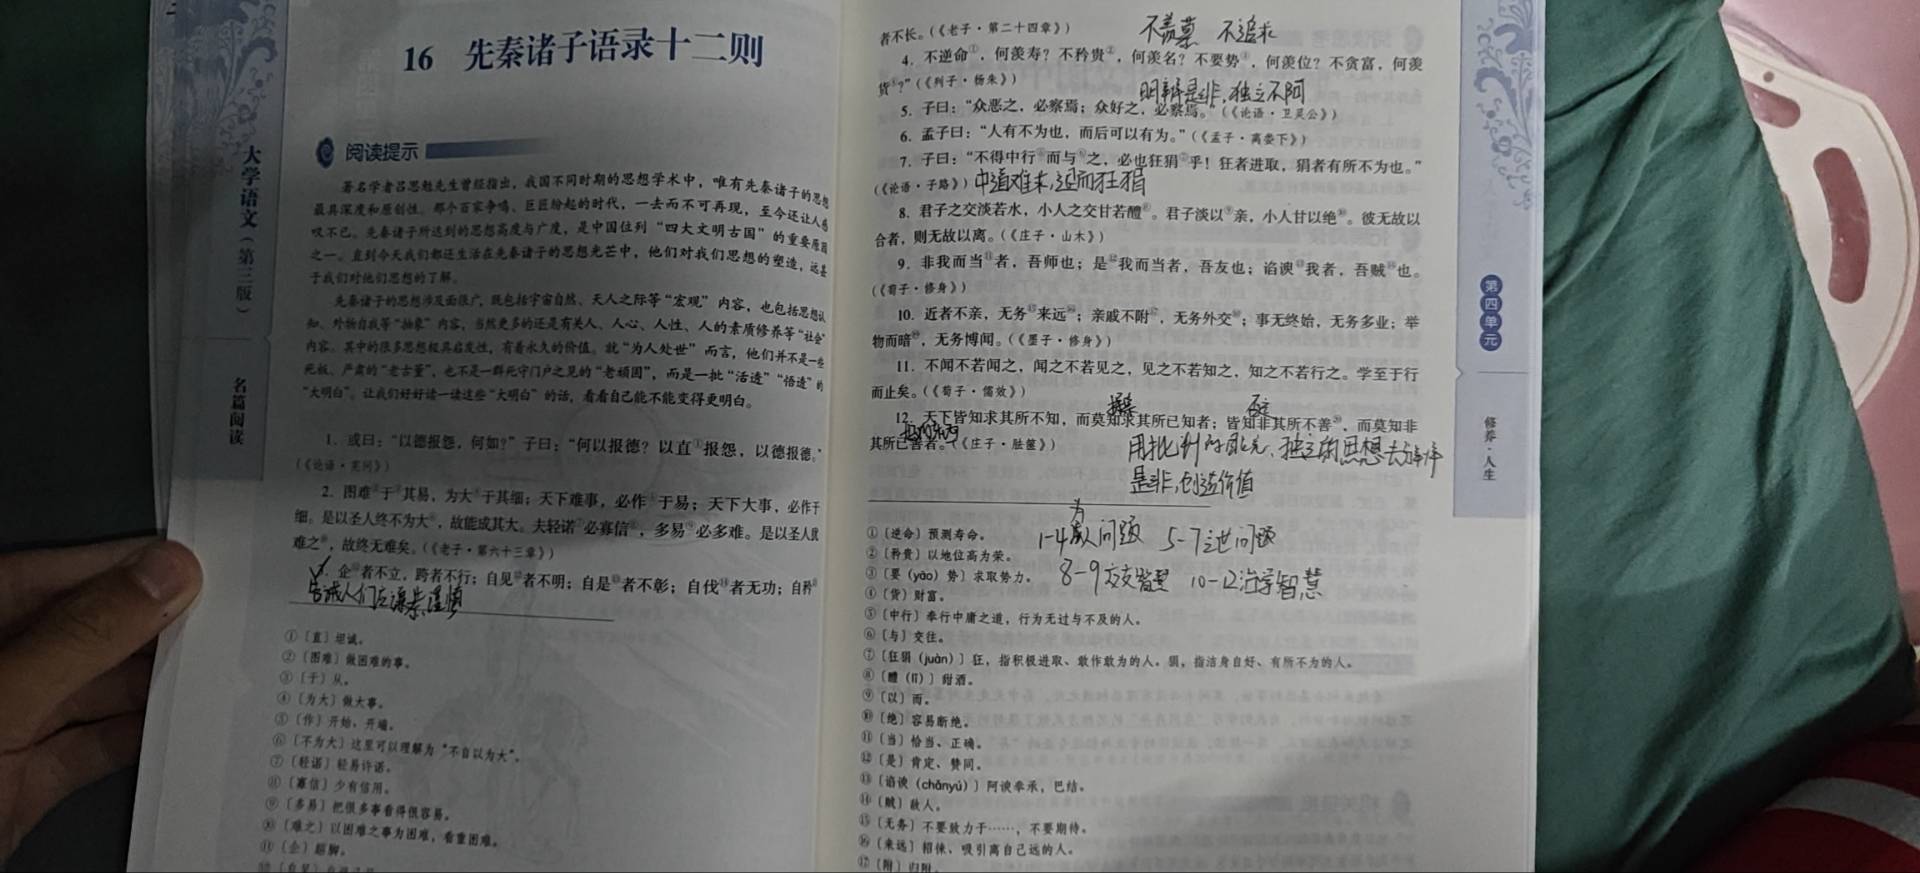 大学语文（第三版）
名篇阅读
16 先秦诸子语录十二则
阅读提示
著名学者吕思勉先生曾经指出，我国不同时期的思想学术中，唯有先秦诸子的思想
最具深度和原创性。那个百家争鸣、巨匠纷起的时代，一去而不可再现，至今还让人感
叹不已。先秦诸子所达到的思想高度与广度，是中国位列“四大文明古国”的重要原因
之一。直到今天我们都还生活在先秦诸子的思想光芒中，他们对我们思想的塑造，远甚
于我们对他们思想的了解。
先秦诸子的思想涉及面很广，既包括宇宙自然、天人之际等“宏观”内容，也包括思想认
知、外物自我等“抽象”内容，当然更多的还是有关人、人心、人性、人的素质修养等“社会”
内容。其中的很多思想极具启发性，有着永久的价值。就“为人处世”而言，他们并不是一些
死板、严肃的“老古董”，也不是一群死守门户之见的“老顽固”，而是一批“活透”“悟透”的
“大明白”。让我们好好读一读这些“大明白”的话，看看自己能不能变得更明白。
1. 或曰：“以德报怨，何如？”子曰：“何以报德？以直①报怨，以德报德。”
（《论语·宪问》）
2. 图难②于③其易，为大④于其细；天下难事，必作⑤于易；天下大事，必作于
细。是以圣人终不为大⑥，故能成其大。夫轻诺⑦必寡信⑧，多易⑨必多难。是以圣人犹
难之⑩，故终无难矣。（《老子·第六十三章》）
企⑪者不立，跨者不行；自见⑫者不明；自是⑬者不彰；自伐⑭者无功；自矜⑮
告诫人们应谦恭谨慎
①〔直〕坦诚。
②〔图难〕做困难的事。
③〔于〕从。
④〔为大〕做大事。
⑤〔作〕开始、开端。
⑥〔不为大〕这里可以理解为“不自以为大”。
⑦〔轻诺〕轻易许诺。
⑧〔寡信〕少有信用。
⑨〔多易〕把很多事看得很容易。
⑩〔难之〕以困难之事为困难，看重困难。
⑪〔企〕踮脚。
者不长。（《老子·第二十四章》）
不羡慕 不追求
4. 不逆命①，何羡寿？不矜贵②，何羡名？不要势③，何羡位？不贪富，何羡
货④？”（《列子·杨朱》）
明辨是非，独立不阿
5. 子曰：“众恶之，必察焉；众好之，必察焉。”（《论语·卫灵公》）
6. 孟子曰：“人有不为也，而后可以有为。”（《孟子·离娄下》）
7. 子曰：“不得中行⑤而与⑥之，必也狂狷⑦乎！狂者进取，狷者有所不为也。”
（《论语·子路》）中道难求，退而狂狷
8. 君子之交淡若水，小人之交甘若醴⑧。君子淡以⑨亲，小人甘以绝⑩。彼无故以
合者，则无故以离。（《庄子·山木》）
9. 非我而当⑪者，吾师也；是⑫我而当者，吾友也；谄谀⑬我者，吾贼⑭也。
（《荀子·修身》）
10. 近者不亲，无务⑮来远⑯；亲戚不附⑰，无务外交⑱；事无终始，无务多业；举
物而暗⑲，无务博闻。（《墨子·修身》）
11. 不闻不若闻之，闻之不若见之，见之不若知之，知之不若行之。学至于行
而止矣。（《荀子·儒效》）
12. 天下皆知求其所不知，而莫知求其所已知者；皆知非其所不善⑳，而莫知非
其所已善者。（《庄子·胠箧》）
用批判的眼光、独立的思想去
是非，创造价值
①〔逆命〕预测寿命。
②〔矜贵〕以地位高为荣。
③〔要（yāo）势〕求取势力。
④〔货〕财富。
⑤〔中行〕奉行中庸之道，行为无过与不及的人。
⑥〔与〕交往。
⑦〔狂狷（juàn）〕狂，指积极进取、敢作敢为的人。狷，指洁身自好、有所不为的人。
⑧〔醴（lǐ）〕甜酒。
⑨〔以〕而。
⑩〔绝〕容易断绝。
⑪〔当〕恰当、正确。
⑫〔是〕肯定、赞同。
⑬〔谄谀（chǎnyú）〕阿谀奉承，巴结。
⑭〔贼〕敌人。
⑮〔无务〕不要致力于……，不要期待。
⑯〔来远〕招徕、吸引离自己远的人。
⑰〔附〕归附。
为
1-4 人问题 5-7 问题
8-9 智慧 10-12 治学智慧
第四单元
修养·人生